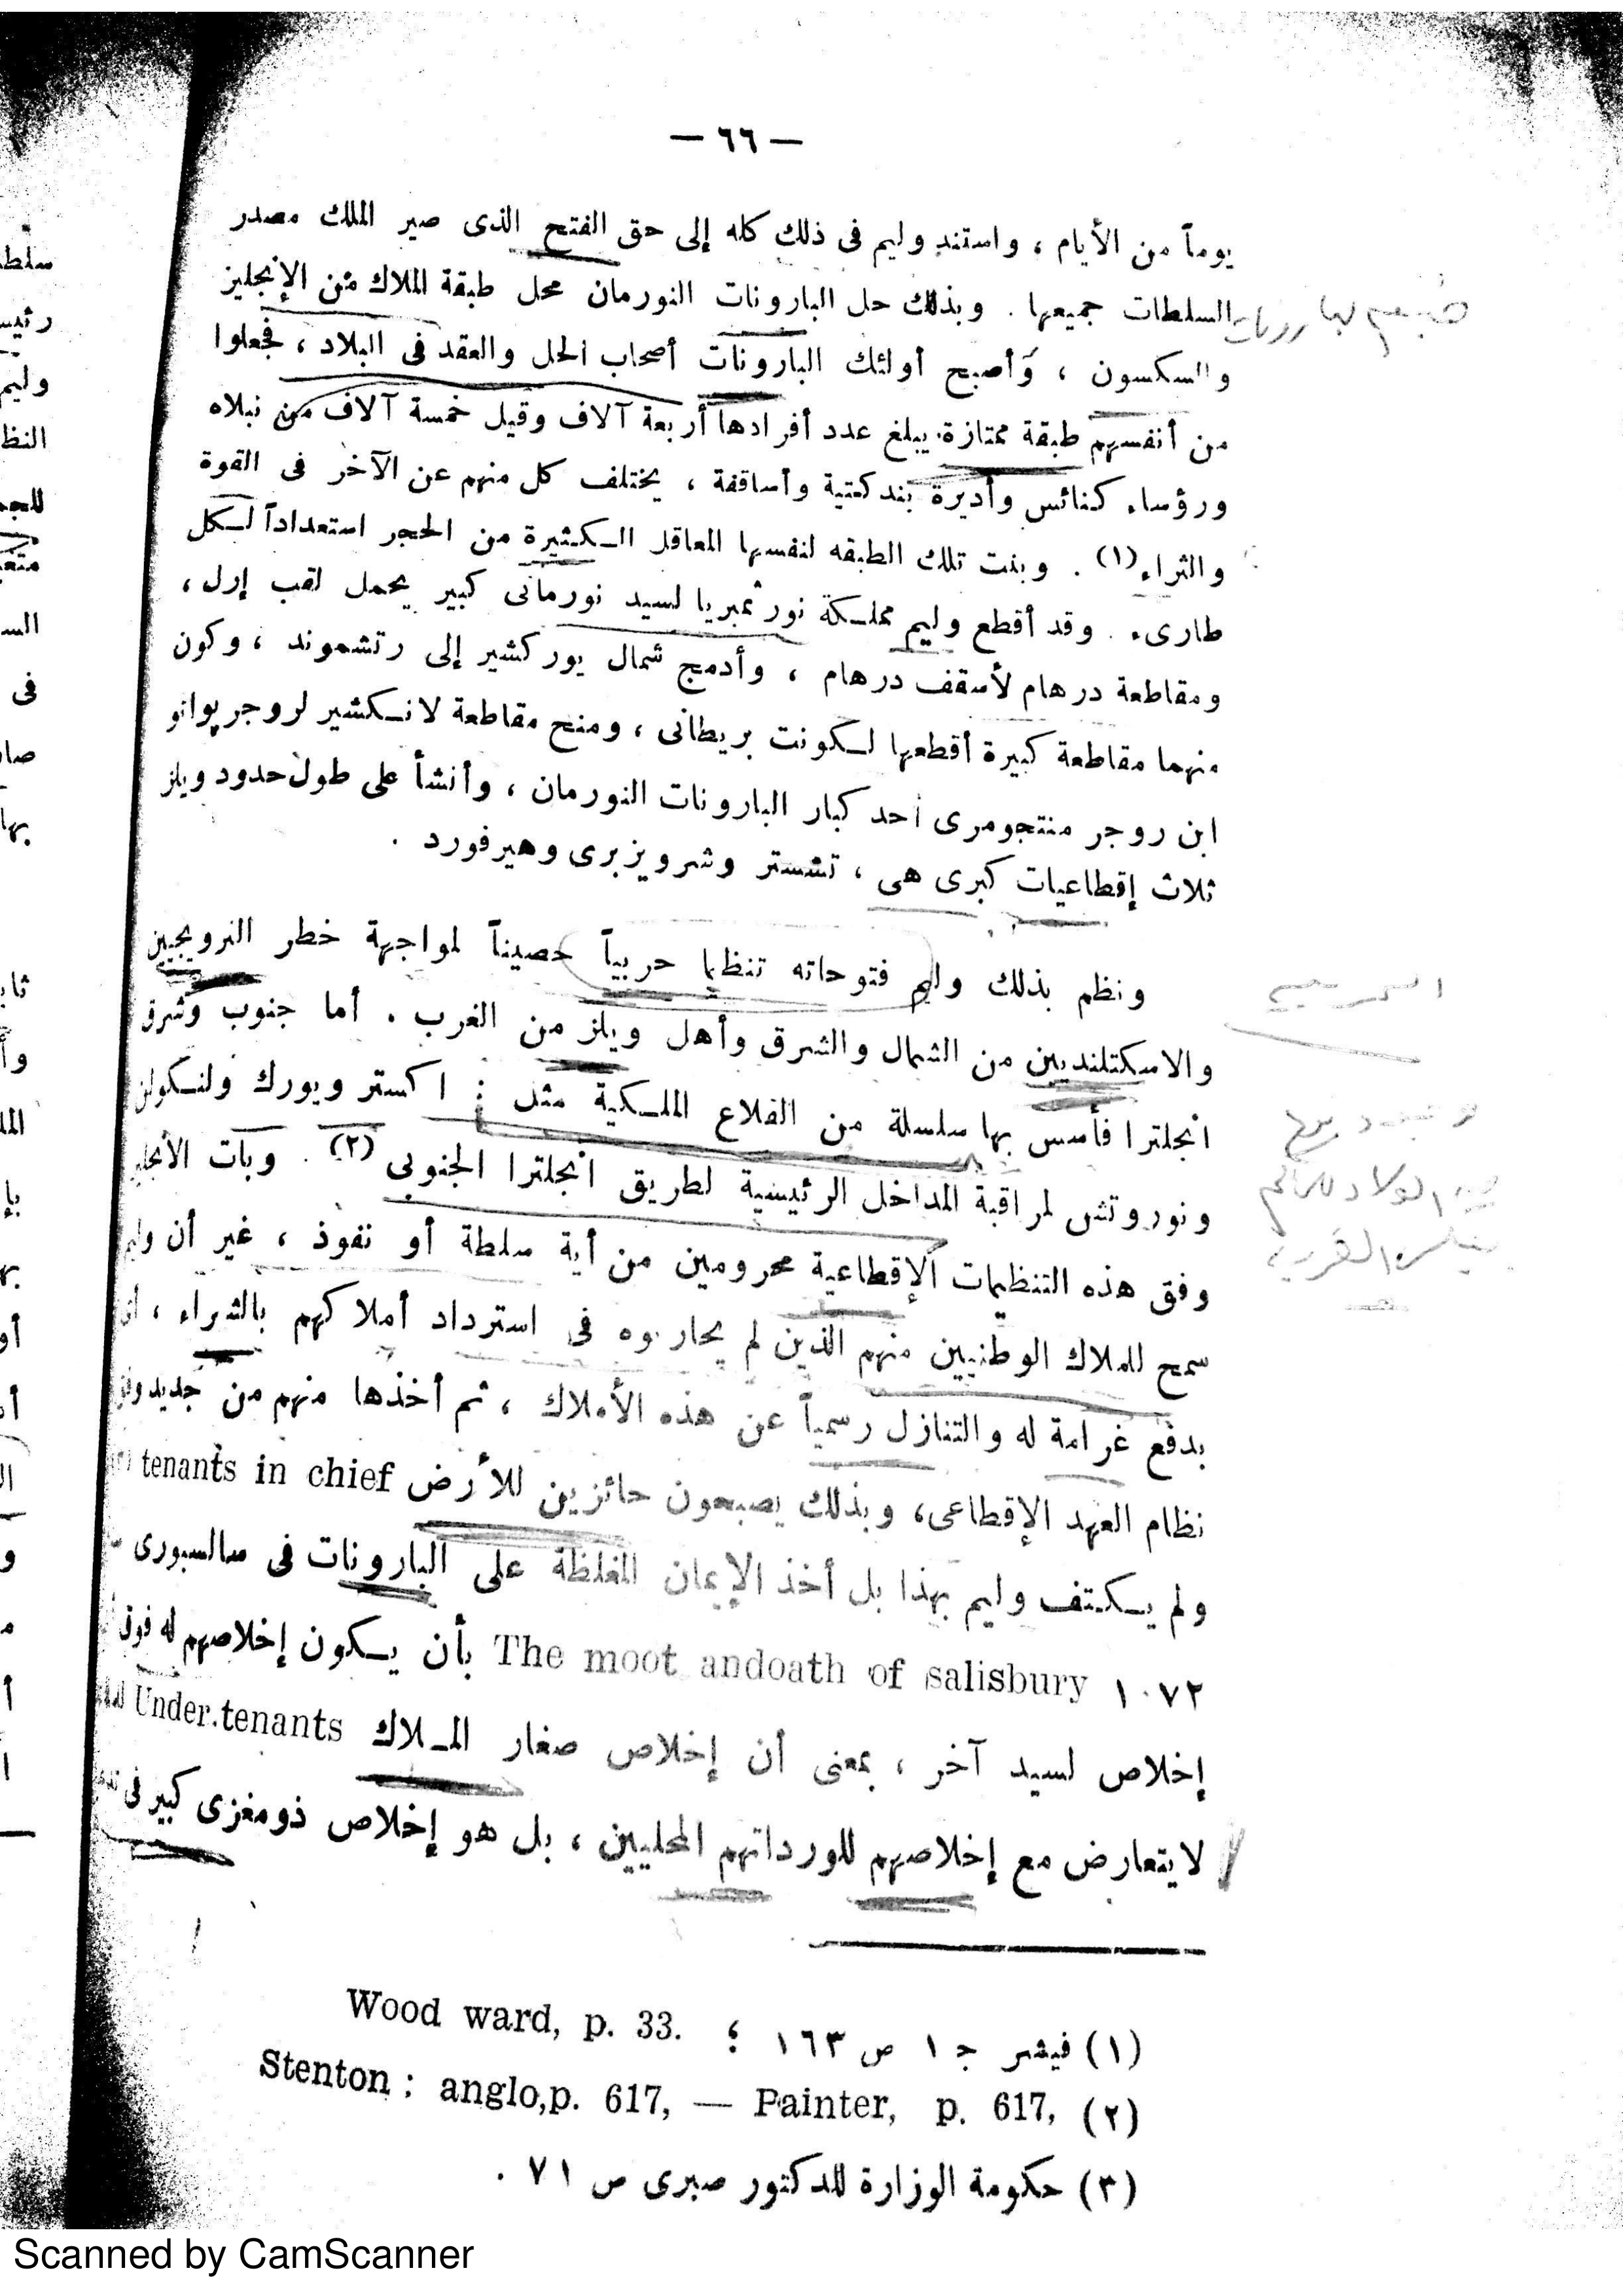 — ٦٦ —
يوماً من الأيام ، واستند وليم فى ذلك كله إلى حق الفتح الذى صير الملك مصدر
السلطات جميعها . وبذلك حل البارونات النورمان محل طبقة الملاك من الإنجليز
والسكسون ، وأصبح أولئك البارونات أصحاب الحل والعقد فى البلاد ، فجعلوا
من أنفسهم طبقة ممتازة يبلغ عدد أفرادها أربعة آلاف وقيل خمسة آلاف من نبلاء
ورؤساء كنائس وأديرة بندكتية وأساقفة ، يختلف كل منهم عن الآخر فى القوة
والثراء (١) . وبنت تلك الطبقه لنفسها المعاقل الكثيرة من الحجر استعداداً لكل
طارىء . وقد أقطع وليم مملكة نورثمبريا لسيد نورمانى كبير يحمل لقب إرل ،
ومقاطعة درهام لأسقف درهام ، وأدمج شمال يوركشير إلى رتشموند ، وكون
منهما مقاطعة كبيرة أقطعها لكونت بريطانى ، ومنح مقاطعة لانكشير لروجر پوانو
ابن روجر منتجومرى أحد كبار البارونات النورمان ، وأنشأ على طول حدود ويلز
ثلاث إقطاعيات كبرى هى ، تشستر وشرويزبرى وهيرفورد .
ونظم بذلك وليم فتوحاته تنظيما حربياً حصيناً لمواجهة خطر النرويجيين
والاسكتلنديين من الشمال والشرق وأهل ويلز من الغرب . أما جنوب وشرق
انجلترا فأسس بها سلسلة من القلاع الملكية مثل : اكستر ويورك ولنكولن
ونوروتش لمراقبة المداخل الرئيسية لطريق انجلترا الجنوبى (٢) . وبات الأنجليز
وفق هذه التنظيمات الإقطاعية محرومين من أية سلطة أو نفوذ ، غير أن وليم
سمح للملاك الوطنيين منهم الذين لم يحاربوه فى استرداد أملاكهم بالشراء ، أى
بدفع غرامة له والتنازل رسمياً عن هذه الأملاك ، ثم أخذها منهم من جديد وفق
نظام العهد الإقطاعى، وبذلك يصبحون حائزين للأرض tenants in chief
ولم يكتف وليم بهذا بل أخذ الإيمان المغلظة على البارونات فى سالسبورى
١٠٧٢ The moot andoath of salisbury بأن يكون إخلاصهم له فوق
إخلاص لسيد آخر ، بمعنى أن إخلاص صغار الملاك Under.tenants
لا يتعارض مع إخلاصهم للورداتهم المحليين ، بل هو إخلاص ذو مغزى كبير فى
(١) فيشر ج ١ ص ١٦٣ ؛ Wood ward, p. 33.
(٢) Stenton : anglo,p. 617, — Painter, p. 617,
(٣) حكومة الوزارة للدكتور صبرى ص ٧١ .
سلطة
وليم
النظ
فى
بها
Scanned by CamScanner